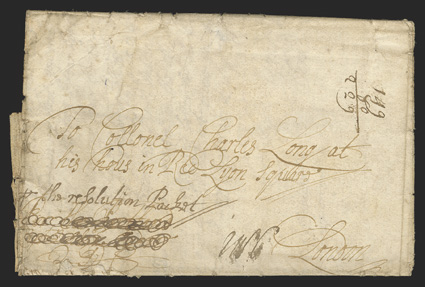 To Collonel Charles Long at
his hous in Red Lyon Square
the resolution Packet
London